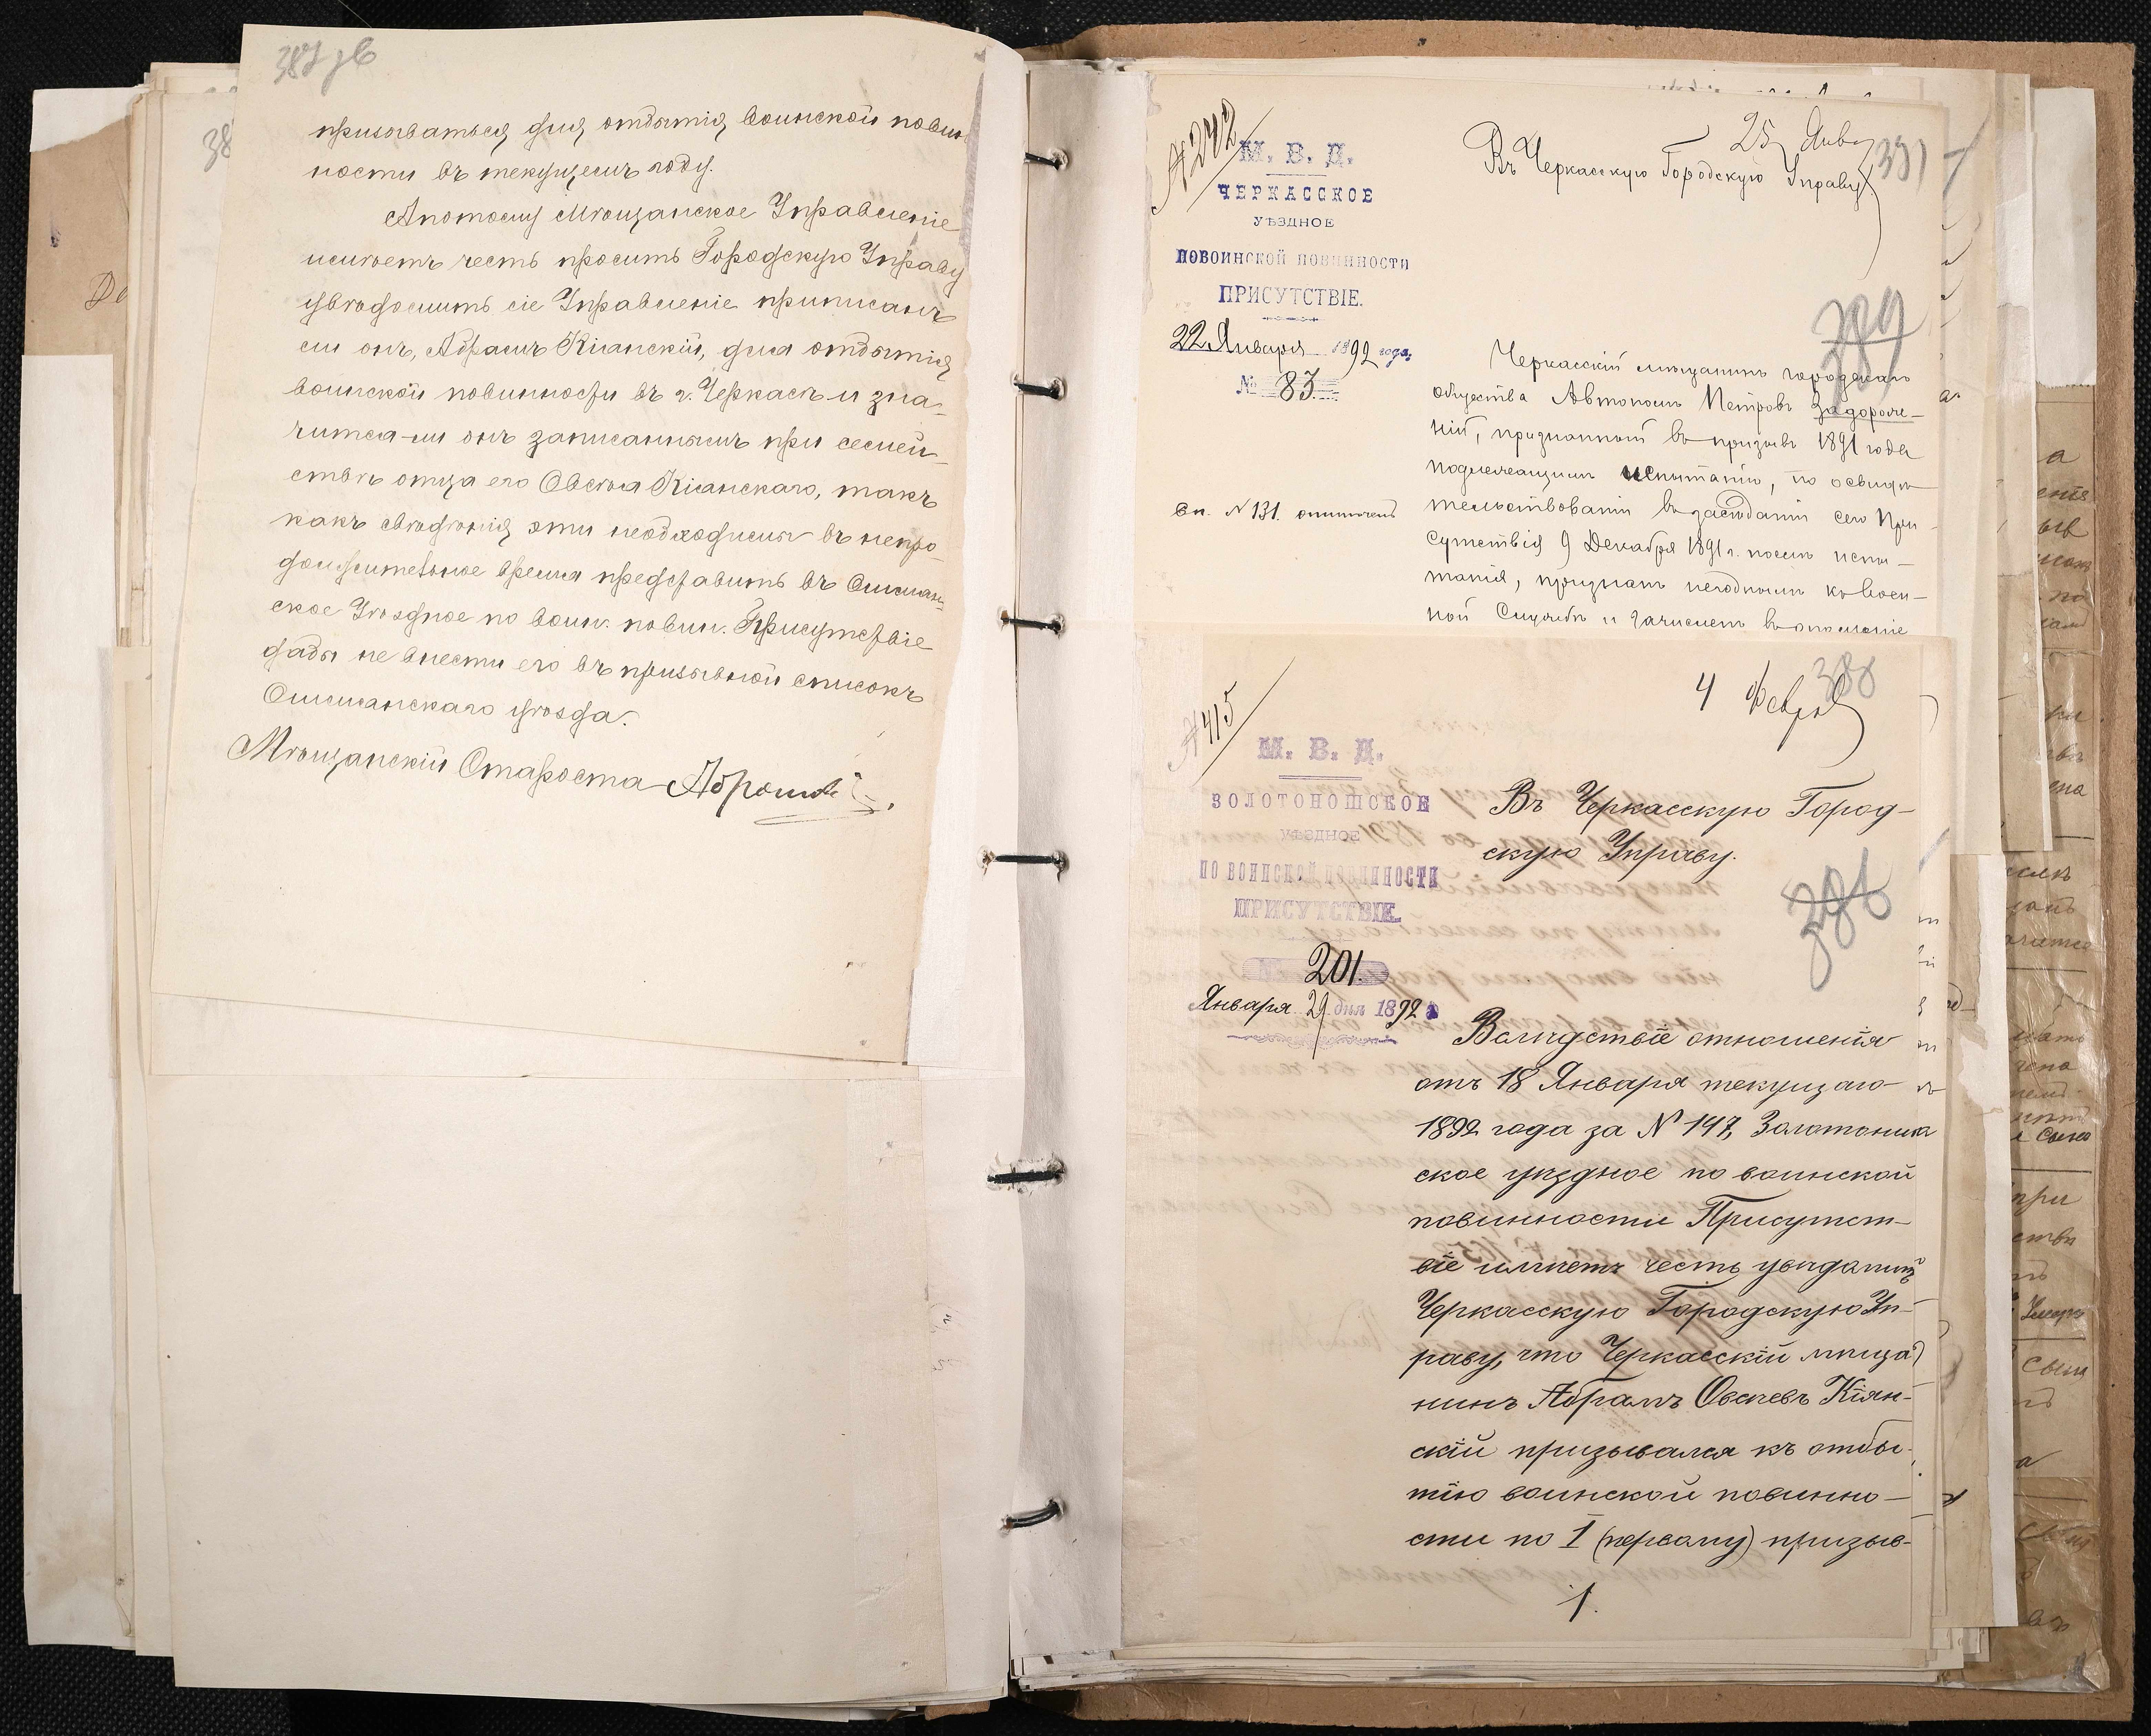 387 об
призываться для отбытія воинской повин
ности въ текущемъ году.
Апотому Мѣщанское Управленіе
имѣетъ честь просить Городскую Управу
увѣдомить сіе Управленіе приписанъ
ли онъ, Абрамъ Кіянскій, для отбытія
воинской повинности въ г. Черкасѣ и зна-
чится-ли онъ записаннымъ при семей-
ствѣ отца его Овсѣя Кіянскаго, такъ
какъ свѣдѣнія эти необходимы въ непро-
должительное время представить въ Ольшан-
ское Уѣздное по воин. повин. Присутствіе
дабы не внести его въ призывной списокъ
Мѣщанскій Староста
38
№ 242
25 Янв
391
М. В. Д.
ЧЕРКАССКОЕ
УѢЗДНОЕ
ПОВОИНСКОЙ ПОВИННОСТИ
ПРИСУТСТВІЕ.
22 Января 1892 года,
№ 83
Въ Черкасскую Городскую Управу
389
Черкасскій мѣщанинъ городскаго
общества Автономъ Петровъ Задорож-
ній, признанный въ призывъ 1891 года
подлежащимъ испытанію, по освидѣ-
тельствованіи въ засѣданіи сего При-
сутствія 9 Декабря 1891 г. послѣ испы-
танія, признанъ негоднымъ къ воен-
ной Службѣ и зачисленъ въ ополченіе
Вп. № 131. отмѣчено
№ 415
4 Февр
388
М. В. Д.
ЗОЛОТОНОШСКОЕ
УѢЗДНОЕ
ПО ВОИНСКОЙ ПОВИННОСТИ
ПРИСУТСТВІЕ.
№ 201.
Января 29 дня 1892 г.
Въ Черкасскую Город-
скую Управу.
386
Вслѣдствіе отношенія
отъ 18 Января текущаго
1892 года за № 147, Золотонош
ское уѣздное по воинской
повинности Присутст-
віе имѣетъ честь увѣдомить
Черкасскую Городскую Уп-
раву, что Черкасскій мѣща
нинъ Абрамъ Овсѣевъ Кіян-
скій призывался къ отбы-
тію воинской повинно-
сти по I (первому) призыв-
1.